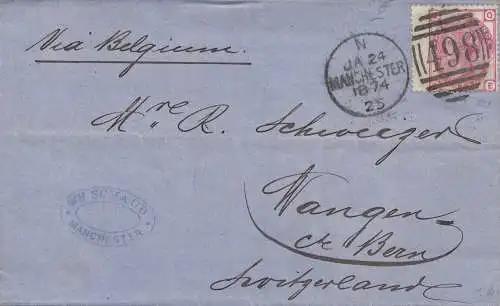 Via Belgium.
N
JA 24
MANCHESTER
1874
25
498
G
E
Mre R. Schweeger
Wangen
c/e Bern
Switzerland
MANCHESTER